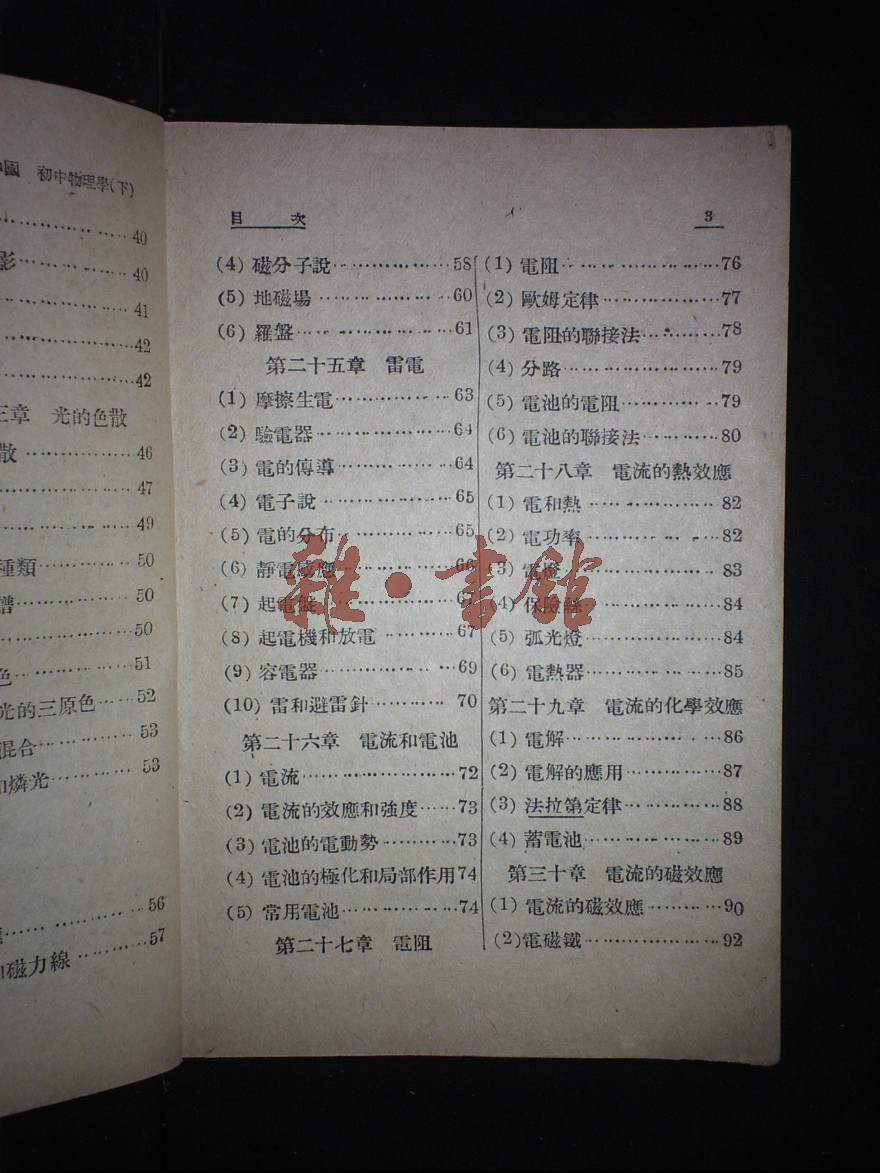 國 初中物理學(下)
40
影 40
41
42
42
三章 光的色散
散 46
47
49
種類 50
譜 50
50
色 51
光的三原色 52
混合 53
和燐光 53
56
和磁力線 57
目 次 3
(4) 磁分子說 58
(5) 地磁場 60
(6) 羅盤 61
第二十五章 雷電
(1) 摩擦生電 63
(2) 驗電器 64
(3) 電的傳導 64
(4) 電子說 65
(5) 電的分布 65
(6) 靜電感應 66
(7) 起電盤 67
(8) 起電機和放電 67
(9) 容電器 69
(10) 雷和避雷針 70
第二十六章 電流和電池
(1) 電流 72
(2) 電流的效應和強度 73
(3) 電池的電動勢 73
(4) 電池的極化和局部作用 74
(5) 常用電池 74
第二十七章 電阻
(1) 電阻 76
(2) 歐姆定律 77
(3) 電阻的聯接法 78
(4) 分路 79
(5) 電池的電阻 79
(6) 電池的聯接法 80
第二十八章 電流的熱效應
(1) 電和熱 82
(2) 電功率 82
(3) 電燈 83
(4) 保險絲 84
(5) 弧光燈 84
(6) 電熱器 85
第二十九章 電流的化學效應
(1) 電解 86
(2) 電解的應用 87
(3) 法拉第定律 88
(4) 蓄電池 89
第三十章 電流的磁效應
(1) 電流的磁效應 90
(2) 電磁鐵 92
雜·書館